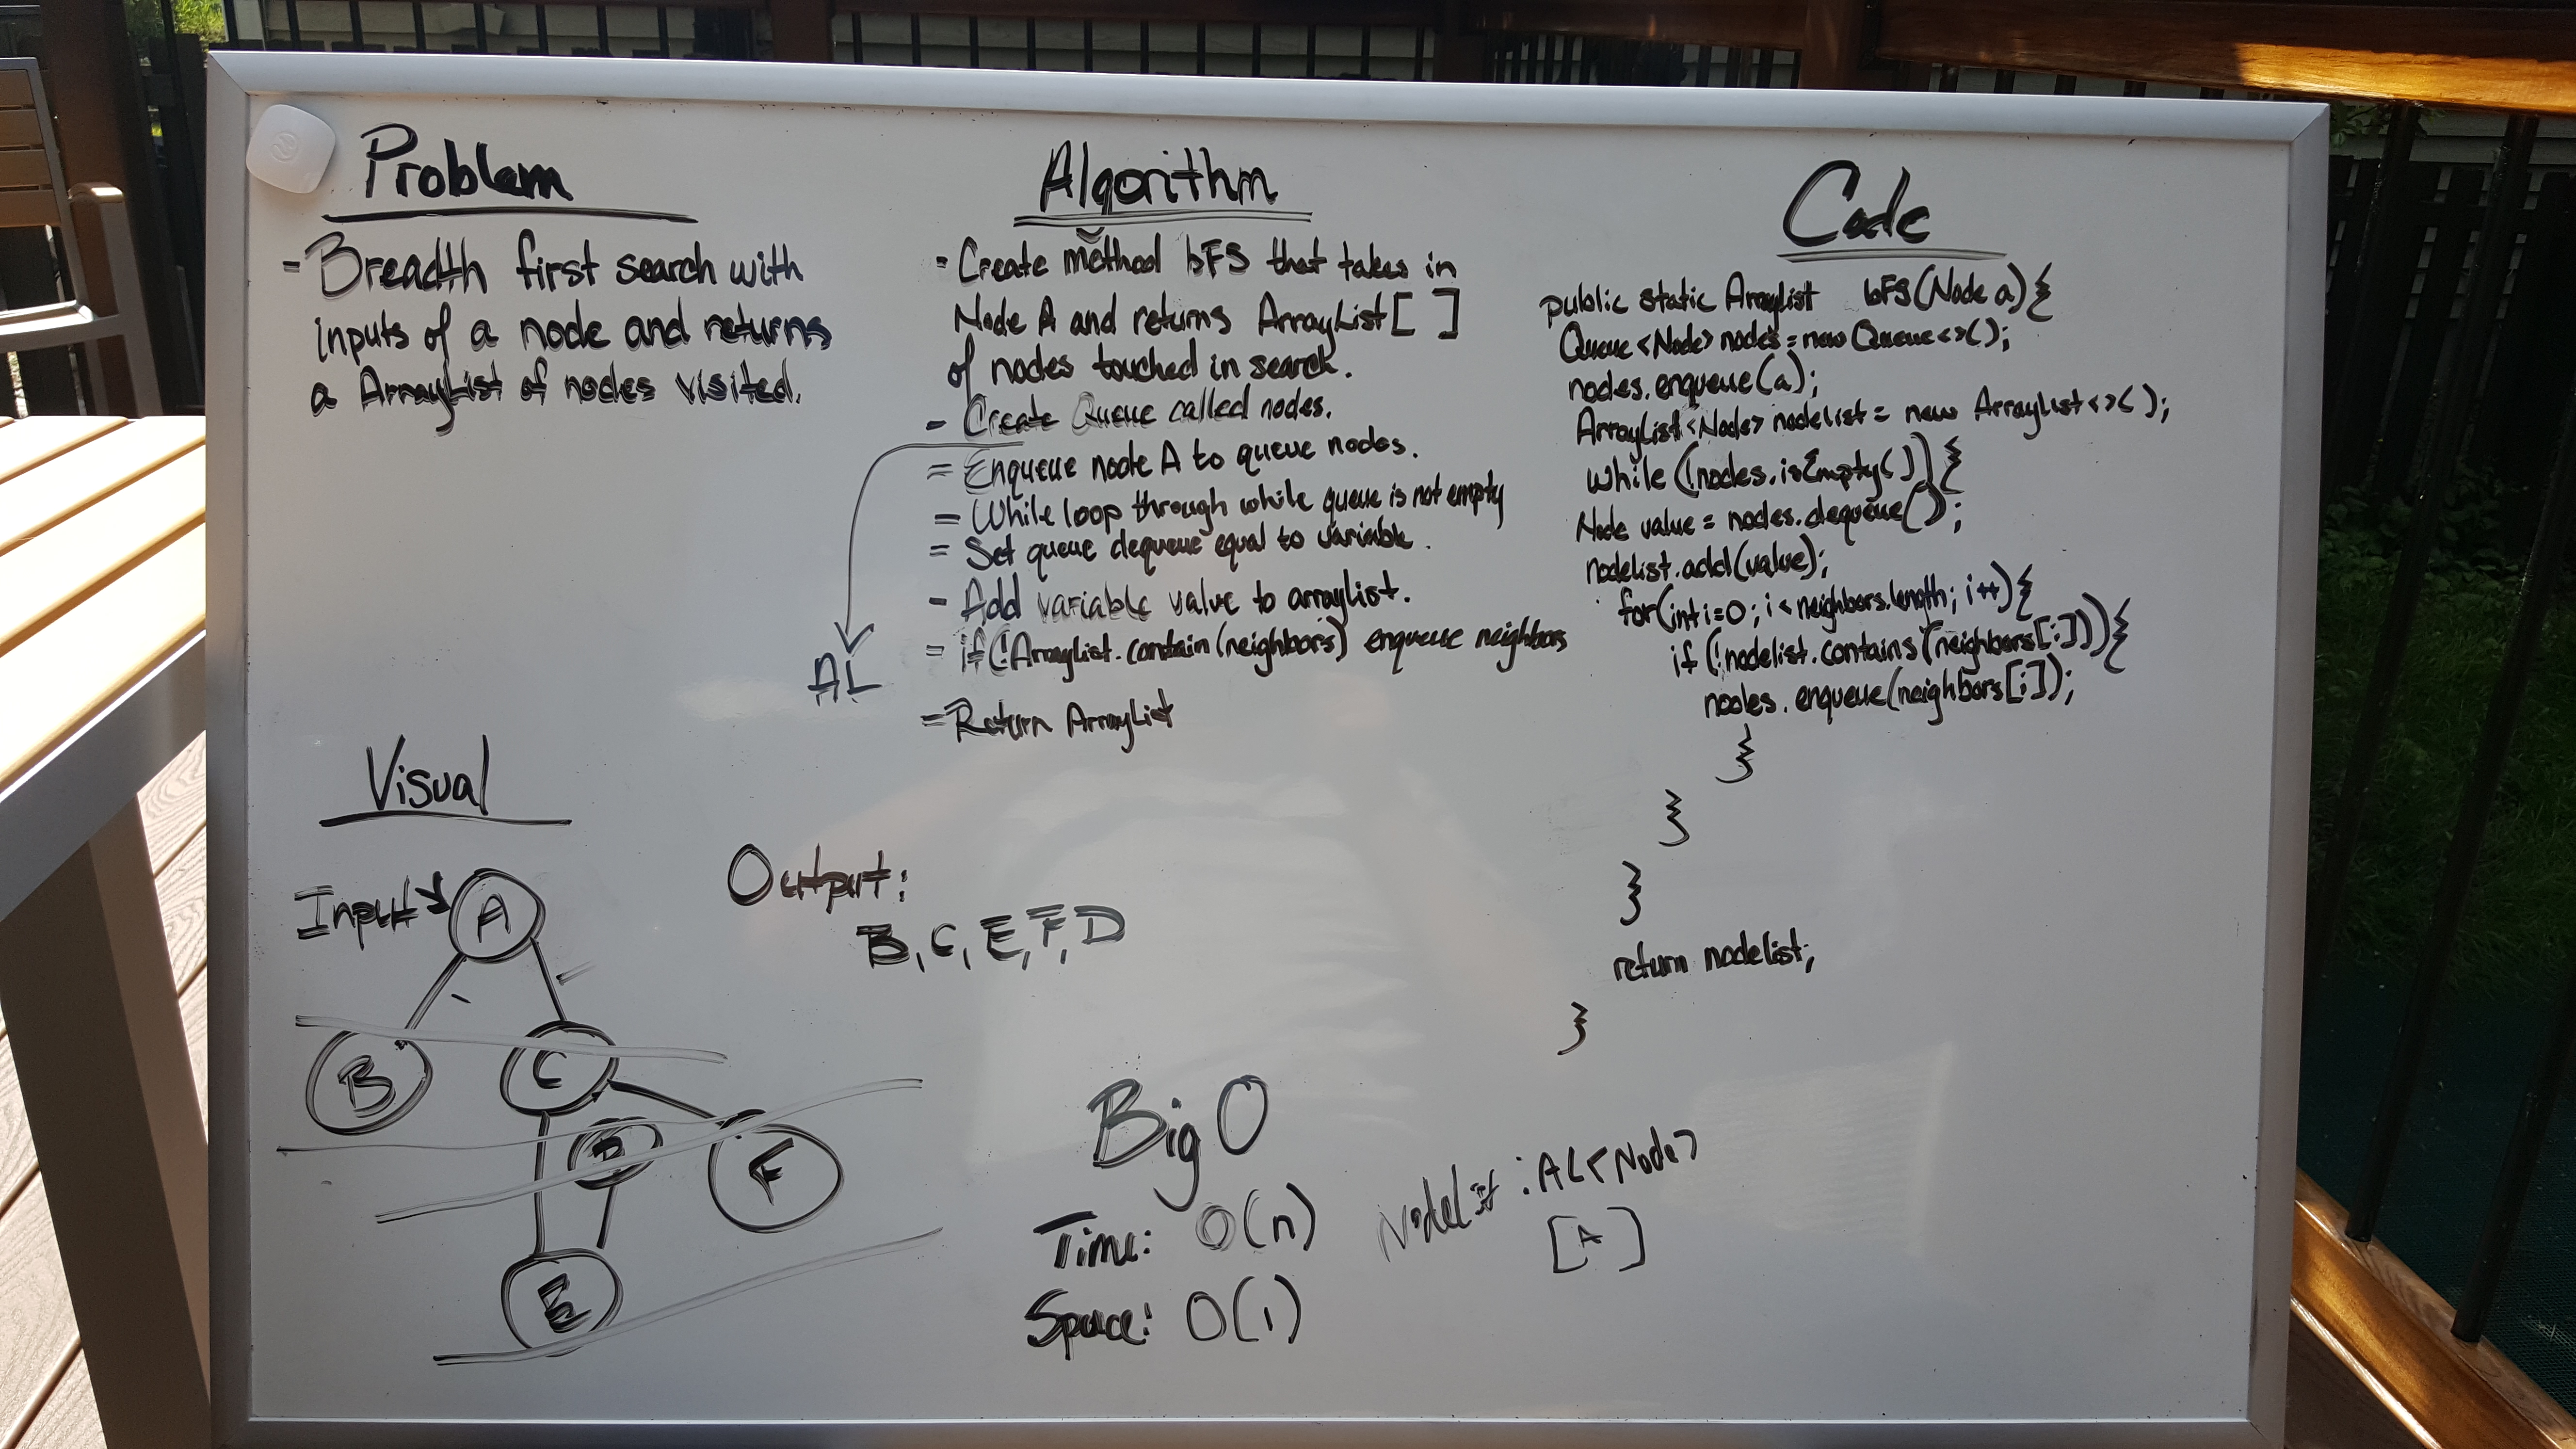 Problem
- Breadth first search with
inputs of a node and returns
a ArrayList of nodes visited.
Algorithm
- Create method bFS that takes in
Node A and returns ArrayList[ ]
of nodes touched in search.
- Create Queue called nodes.
- Enqueue node A to queue nodes.
- While loop through while queue is not empty
- Set queue dequeue equal to variable.
- Add variable value to arraylist.
- if(!ArrayList.contain(neighbors) enqueue neighbors
- Return ArrayList
AL
Code
public static ArrayList bFS(Node a){
Queue<Node> nodes = new Queue<>();
nodes.enqueue(a);
ArrayList<Node> nodelist = new ArrayList<>();
while(!nodes.isEmpty()){
Node value = nodes.dequeue();
nodelist.add(value);
for(int i=0; i<neighbors.length; i++){
if(!nodelist.contains(neighbors[i])){
nodes.enqueue(neighbors[i]);
}
}
}
return nodelist;
}
Visual
Input
A
B
C
D
F
E
Output:
B, C, E, F, D
Big O
Time: O(n)
Space: O(1)
Nodelist : AL<Node>
[A]